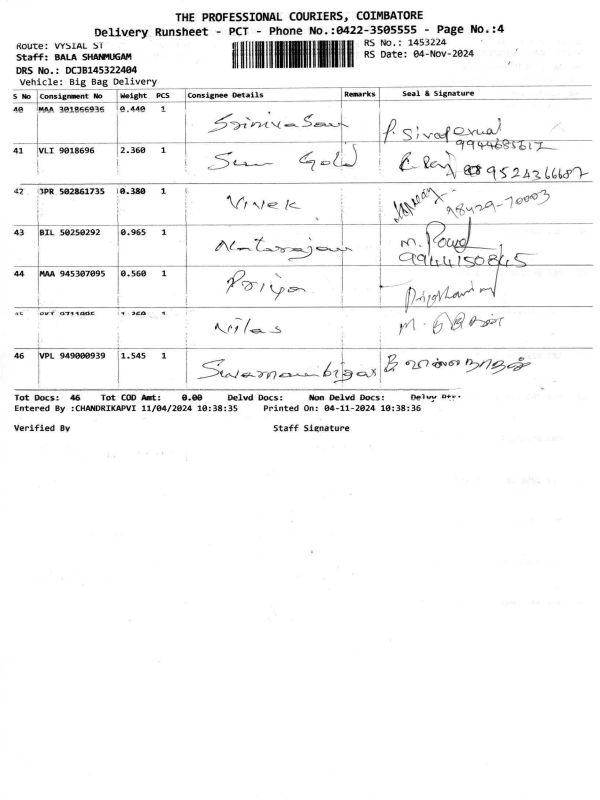 THE PROFESSIONAL COURIERS, COIMBATORE
Delivery Runsheet - PCT - Phone No.:0422-3505555 - Page No.:4
Route: VYSIAL ST RS No.: 1453224
Staff: BALA SHANMUGAM RS Date: 04-Nov-2024
DRS No.: DCJB145322404
Vehicle: Big Bag Delivery
S No Consignment No Weight PCS Consignee Details Remarks Seal & Signature
40 MAA 301866936 0.440 1 Srinivasan P. Sivaperumal
9944685617
41 VLI 9018696 2.360 1 Sun Gold 9524366687
42 JPR 502861735 0.380 1 Vivek 98429-70003
43 BIL 50250292 0.965 1 Natarajan M.
9944150845
44 MAA 945307095 0.560 1 Priya
1 Nilas M.
46 VPL 949000939 1.545 1
Tot Docs: 46 Tot COD Amt: 0.00 Delvd Docs: Non Delvd Docs:
Entered By :CHANDRIKAPVI 11/04/2024 10:38:35 Printed On: 04-11-2024 10:38:36
Verified By Staff Signature